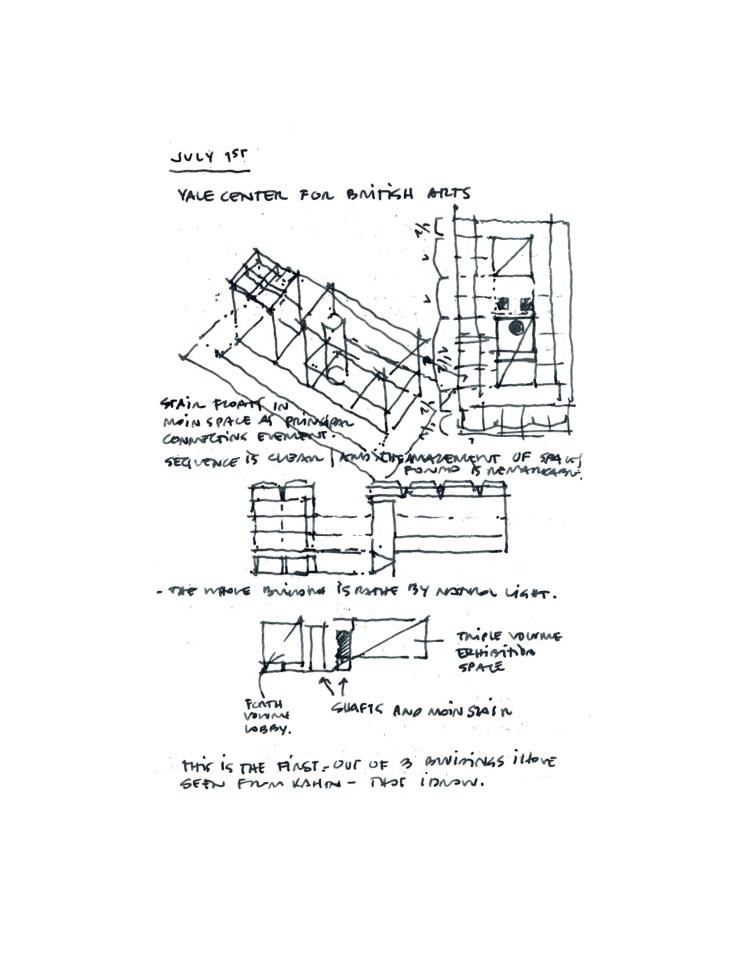 JULY 1ST
YALE CENTER FOR BRITISH ARTS
1/2
1
1
1 1/2
1/2
STAIR FLOATS IN
MAIN SPACE AS PRINCIPAL
CONNECTING ELEMENT.
SEQUENCE IS CLEAR AND THE AMAZEMENT OF SPACE
FOUND IS REMARKABLE.
- THE WHOLE BUILDING IS BATHE BY NATURAL LIGHT.
TRIPLE VOLUME
EXHIBITION
SPACE
FORTH
VOLUME
LOBBY.
SHAFTS AND MAIN STAIR
THIS IS THE FIRST - OUT OF 3 BUILDINGS I HAVE
SEEN FROM KAHN - THAT I KNOW.